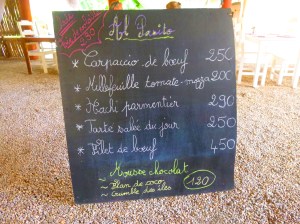 * Carpaccio de bœuf 250
* Millefeuille tomate-mozza 200
* Hachi parmentier 290
* Tarte salée du jour 250
* Filet de bœuf 450
Mousse chocolat
~ Flan de coco 130
~ Crumble des îles